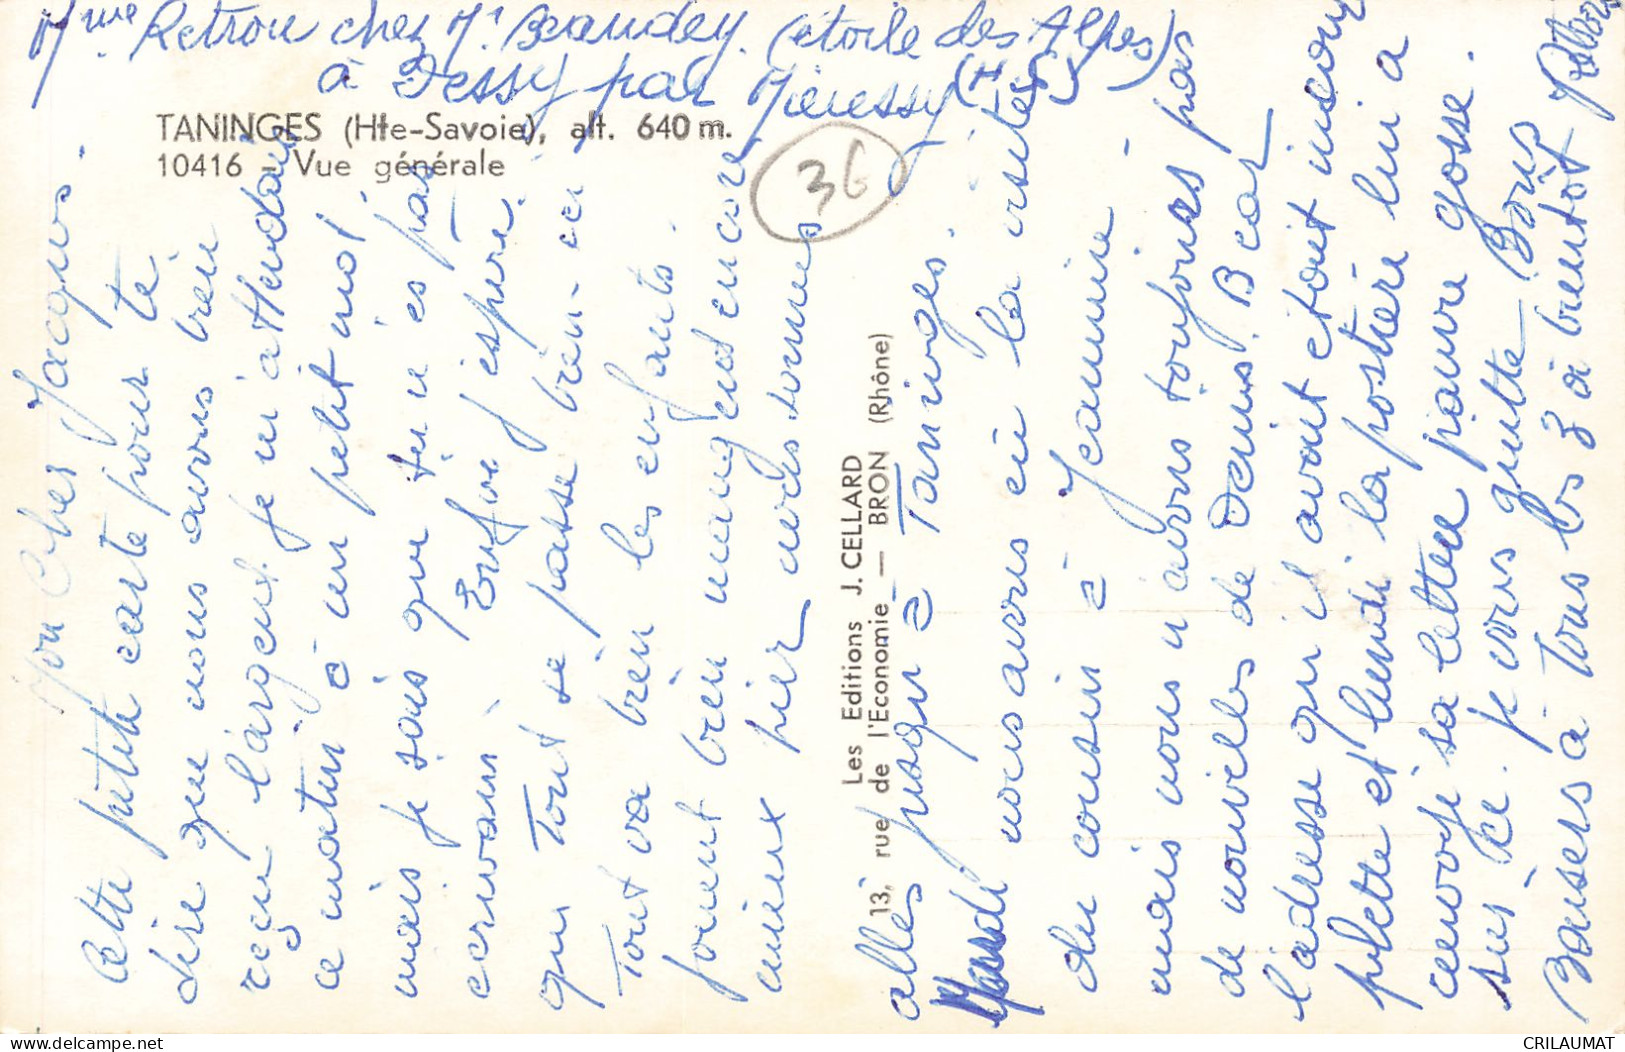 Mme Retrou chez Mr Beaudey. (étoile des Alpes)
à Dessy par Mieussy (Hte S)
TANINGES (Hte-Savoie), alt. 640 m.
10416 - Vue générale
36
Mon Cher Jacques.
Cette petite carte pour te
dire que nous avons bien
reçu l'argent je m'attendais
ce matin à un petit mot
mais je sais que tu n'es pas
ecrivain. Enfin j'espère
que Tout se passe bien.
Tout va bien les enfants.
jouent bien mangent encore
mieux hier nous sommes
Les Editions J. CELLARD
13, rue de l'Economie — BRON (Rhône)
alles jusqu'à Taninges.
Mardi nous avons eu la visite
du cousin à Jeannine -
mais nous n'avons toujours pas
de nouvelles de Denis. B car
l'adresse qu'il avait etait incom
plette et lundi la postière lui a
renvoyé sa lettre pauvre gosse.
sur ce. je vous quitte Bons
Baisers à Tous les 3 à bientôt